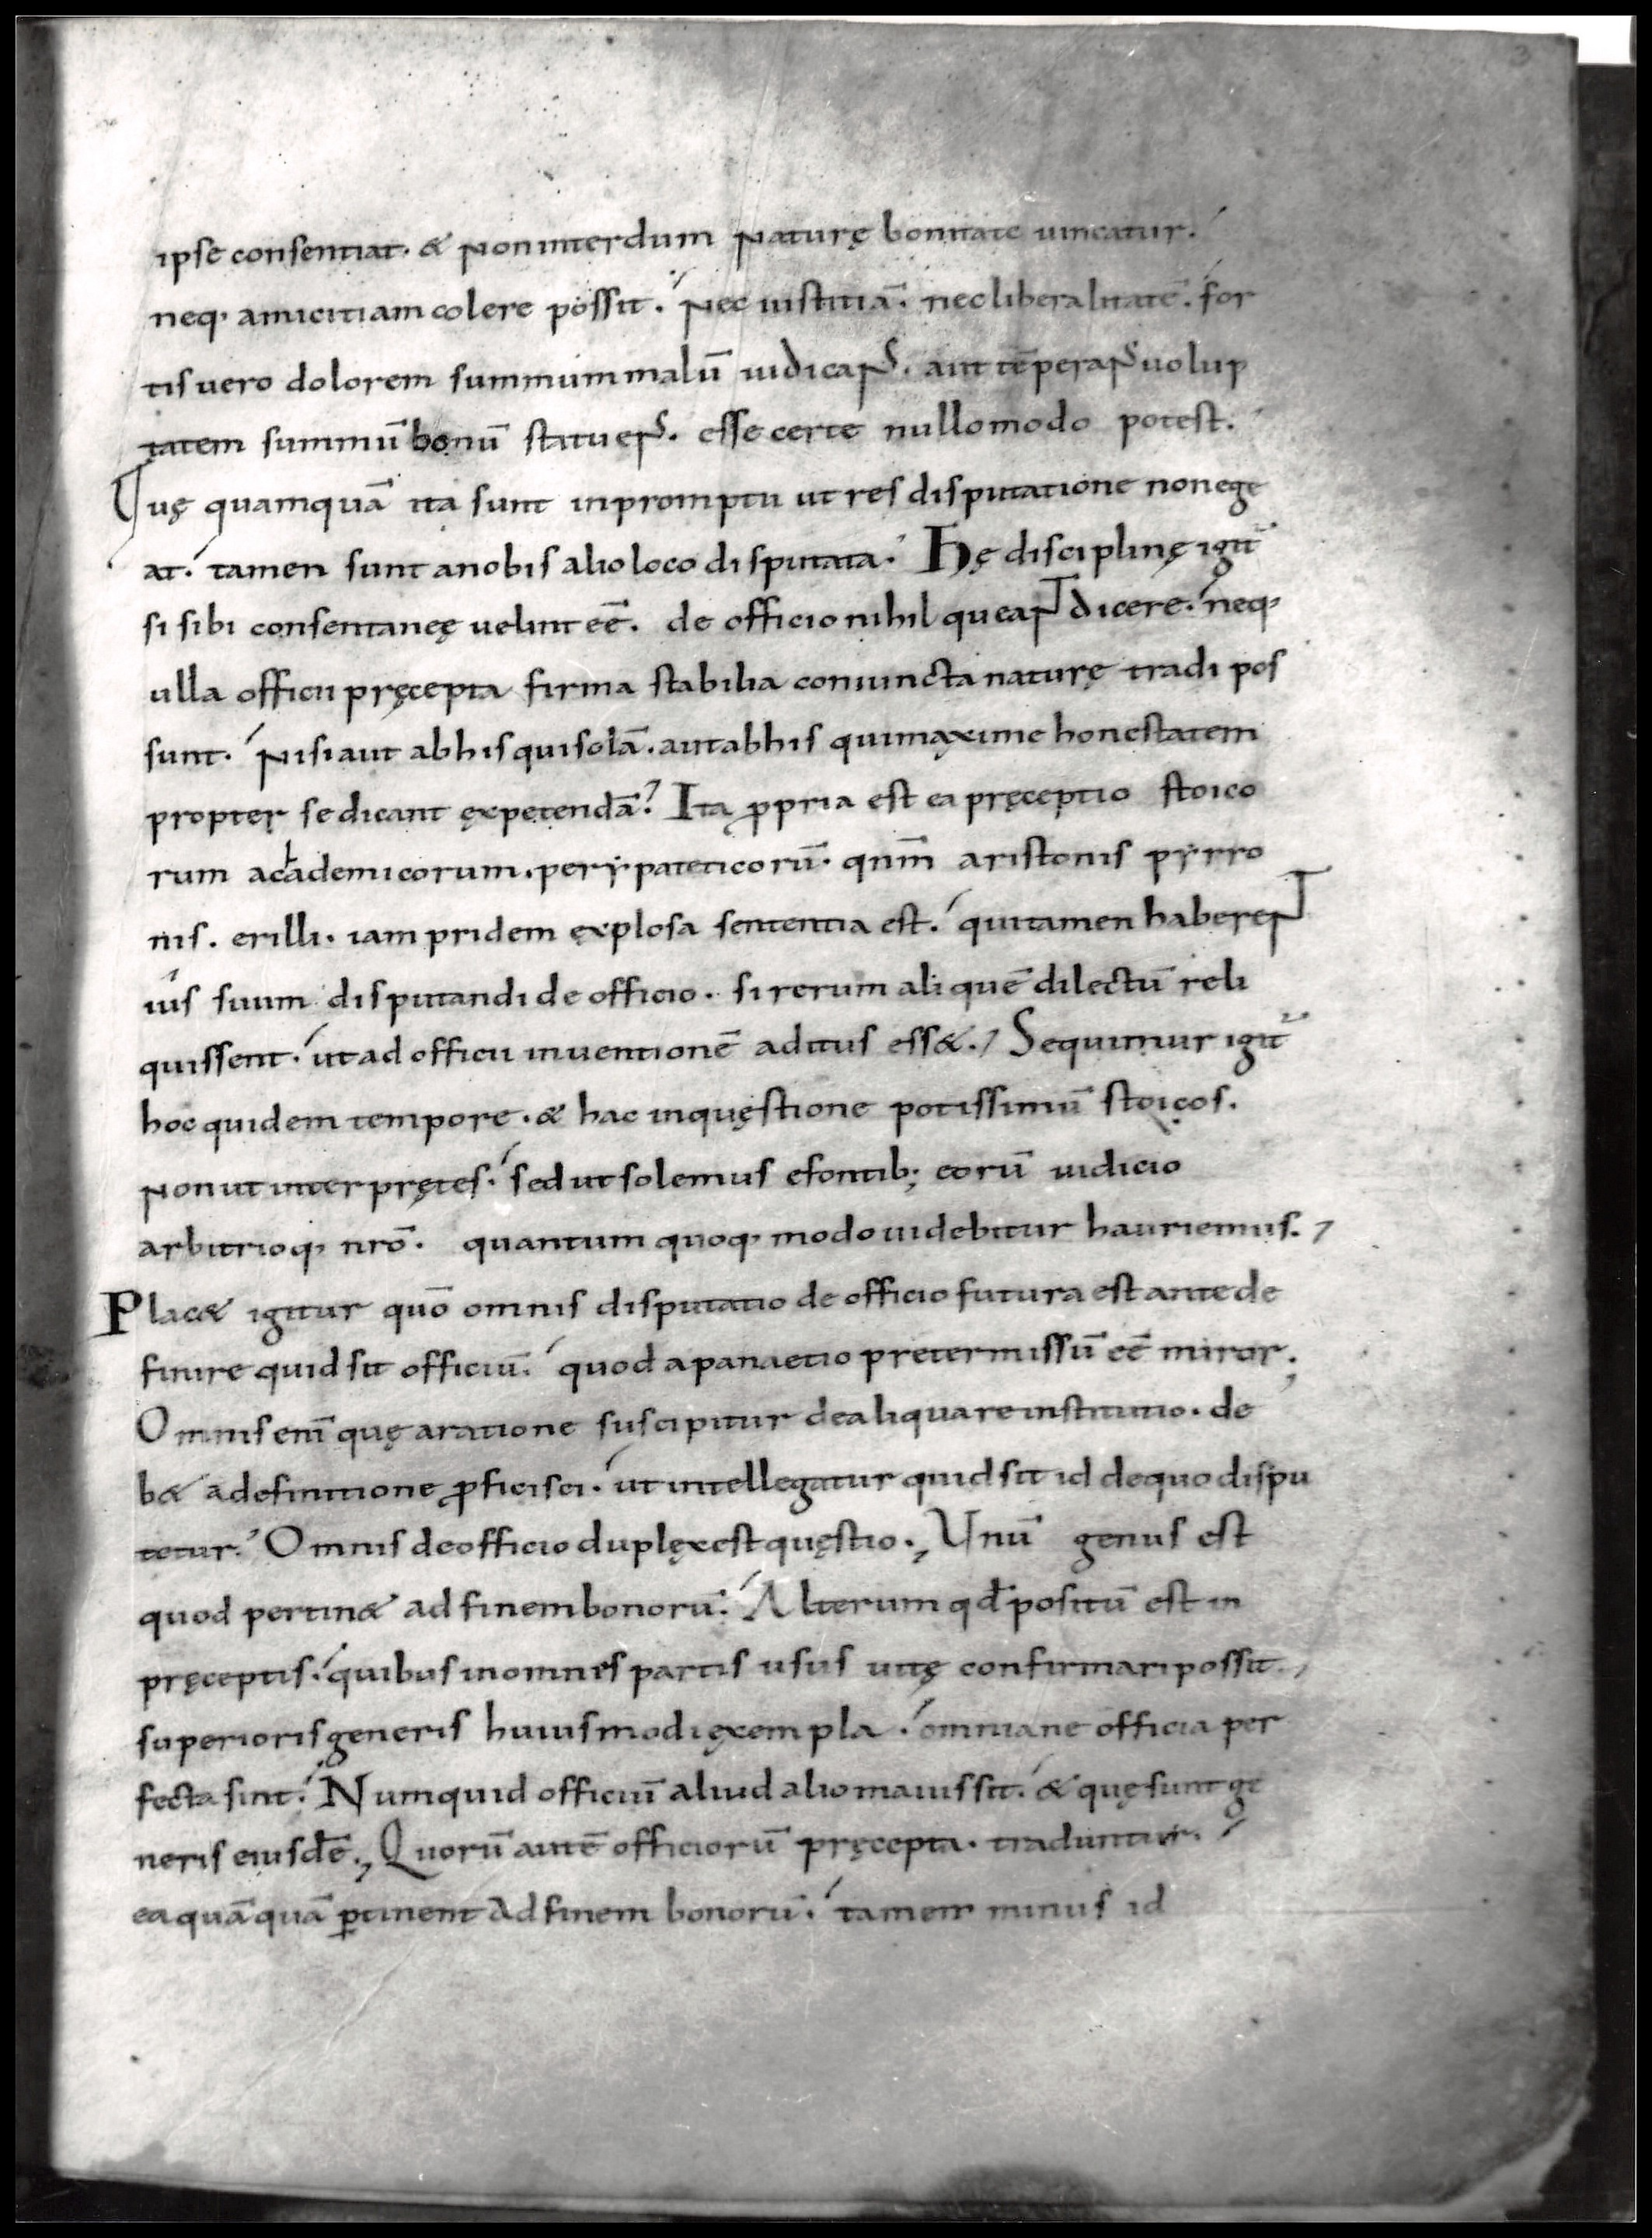 ipse consentiat. & Non interdum Naturę bonitate uincatur.
neq; amicitiam colere possit. Nec iustitiā. nec liberalitatē. for
tis uero dolorem summum malū iudicans. aut tēperans uolup
tatem summū bonū statuens. esse certe nullomodo potest.
Quę quamquā ita sunt inpromptu ut res disputatione non ege
at. tamen sunt anobis alio loco disputata. Hę disciplinę igit̄
si sibi consentaneę uelint eē. de officio nihil queant dicere. neq;
ulla officii pręcepta firma stabilia coniuncta naturę tradi pos
sunt. Nisi aut ab his qui solā. aut ab his qui maxime honestatem
propter se dicant ęxpetendā? Ita ꝓpria est ea pręceptio stoico
rum academicorum. perypateticorū. qnm̄ aristonis pyrro
nis. erilli. iam pridem ęxplosa sententia est. qui tamen haberent
ius suum disputandi de officio. si rerum aliquē dilectū reli
quissent. ut ad officii inuentionē aditus ess&. Sequimur igit̄
hoc quidem tempore. & hac inquęstione potissimū stoicos.
Non ut interpretęs. sed ut solemus e fontib; eorū iudicio
arbitrioq; nrō. quantum quoq; modo uidebitur hauriemus.
Plac& igitur quō omnis disputatio de officio futura est ante de
finire quid sit officiū. quod a panaetio pretermissū eē miror;
Omnis enī quę a ratione suscipitur de aliqua re institutio. de
b& a definitione ꝓficisci. ut intellegatur quid sit id de quo dispu
tetur. Omnis de officio duplęx est quęstio. Unū genus est
quod pertin& ad finem bonorū. Alterum qđ positū est in
pręceptis. quibus in omnes partis usus uitę confirmari possit.
superioris generis huiusmodi ęxempla. omniane officia per
fecta sint. Numquid officiū aliud alio maius sit. & quę sunt ge
neris eiusdē. Quorū autē officiorū pręcepta. traduntur.
ea quā quā ꝑtinent ad finem bonorū. tamen minus id